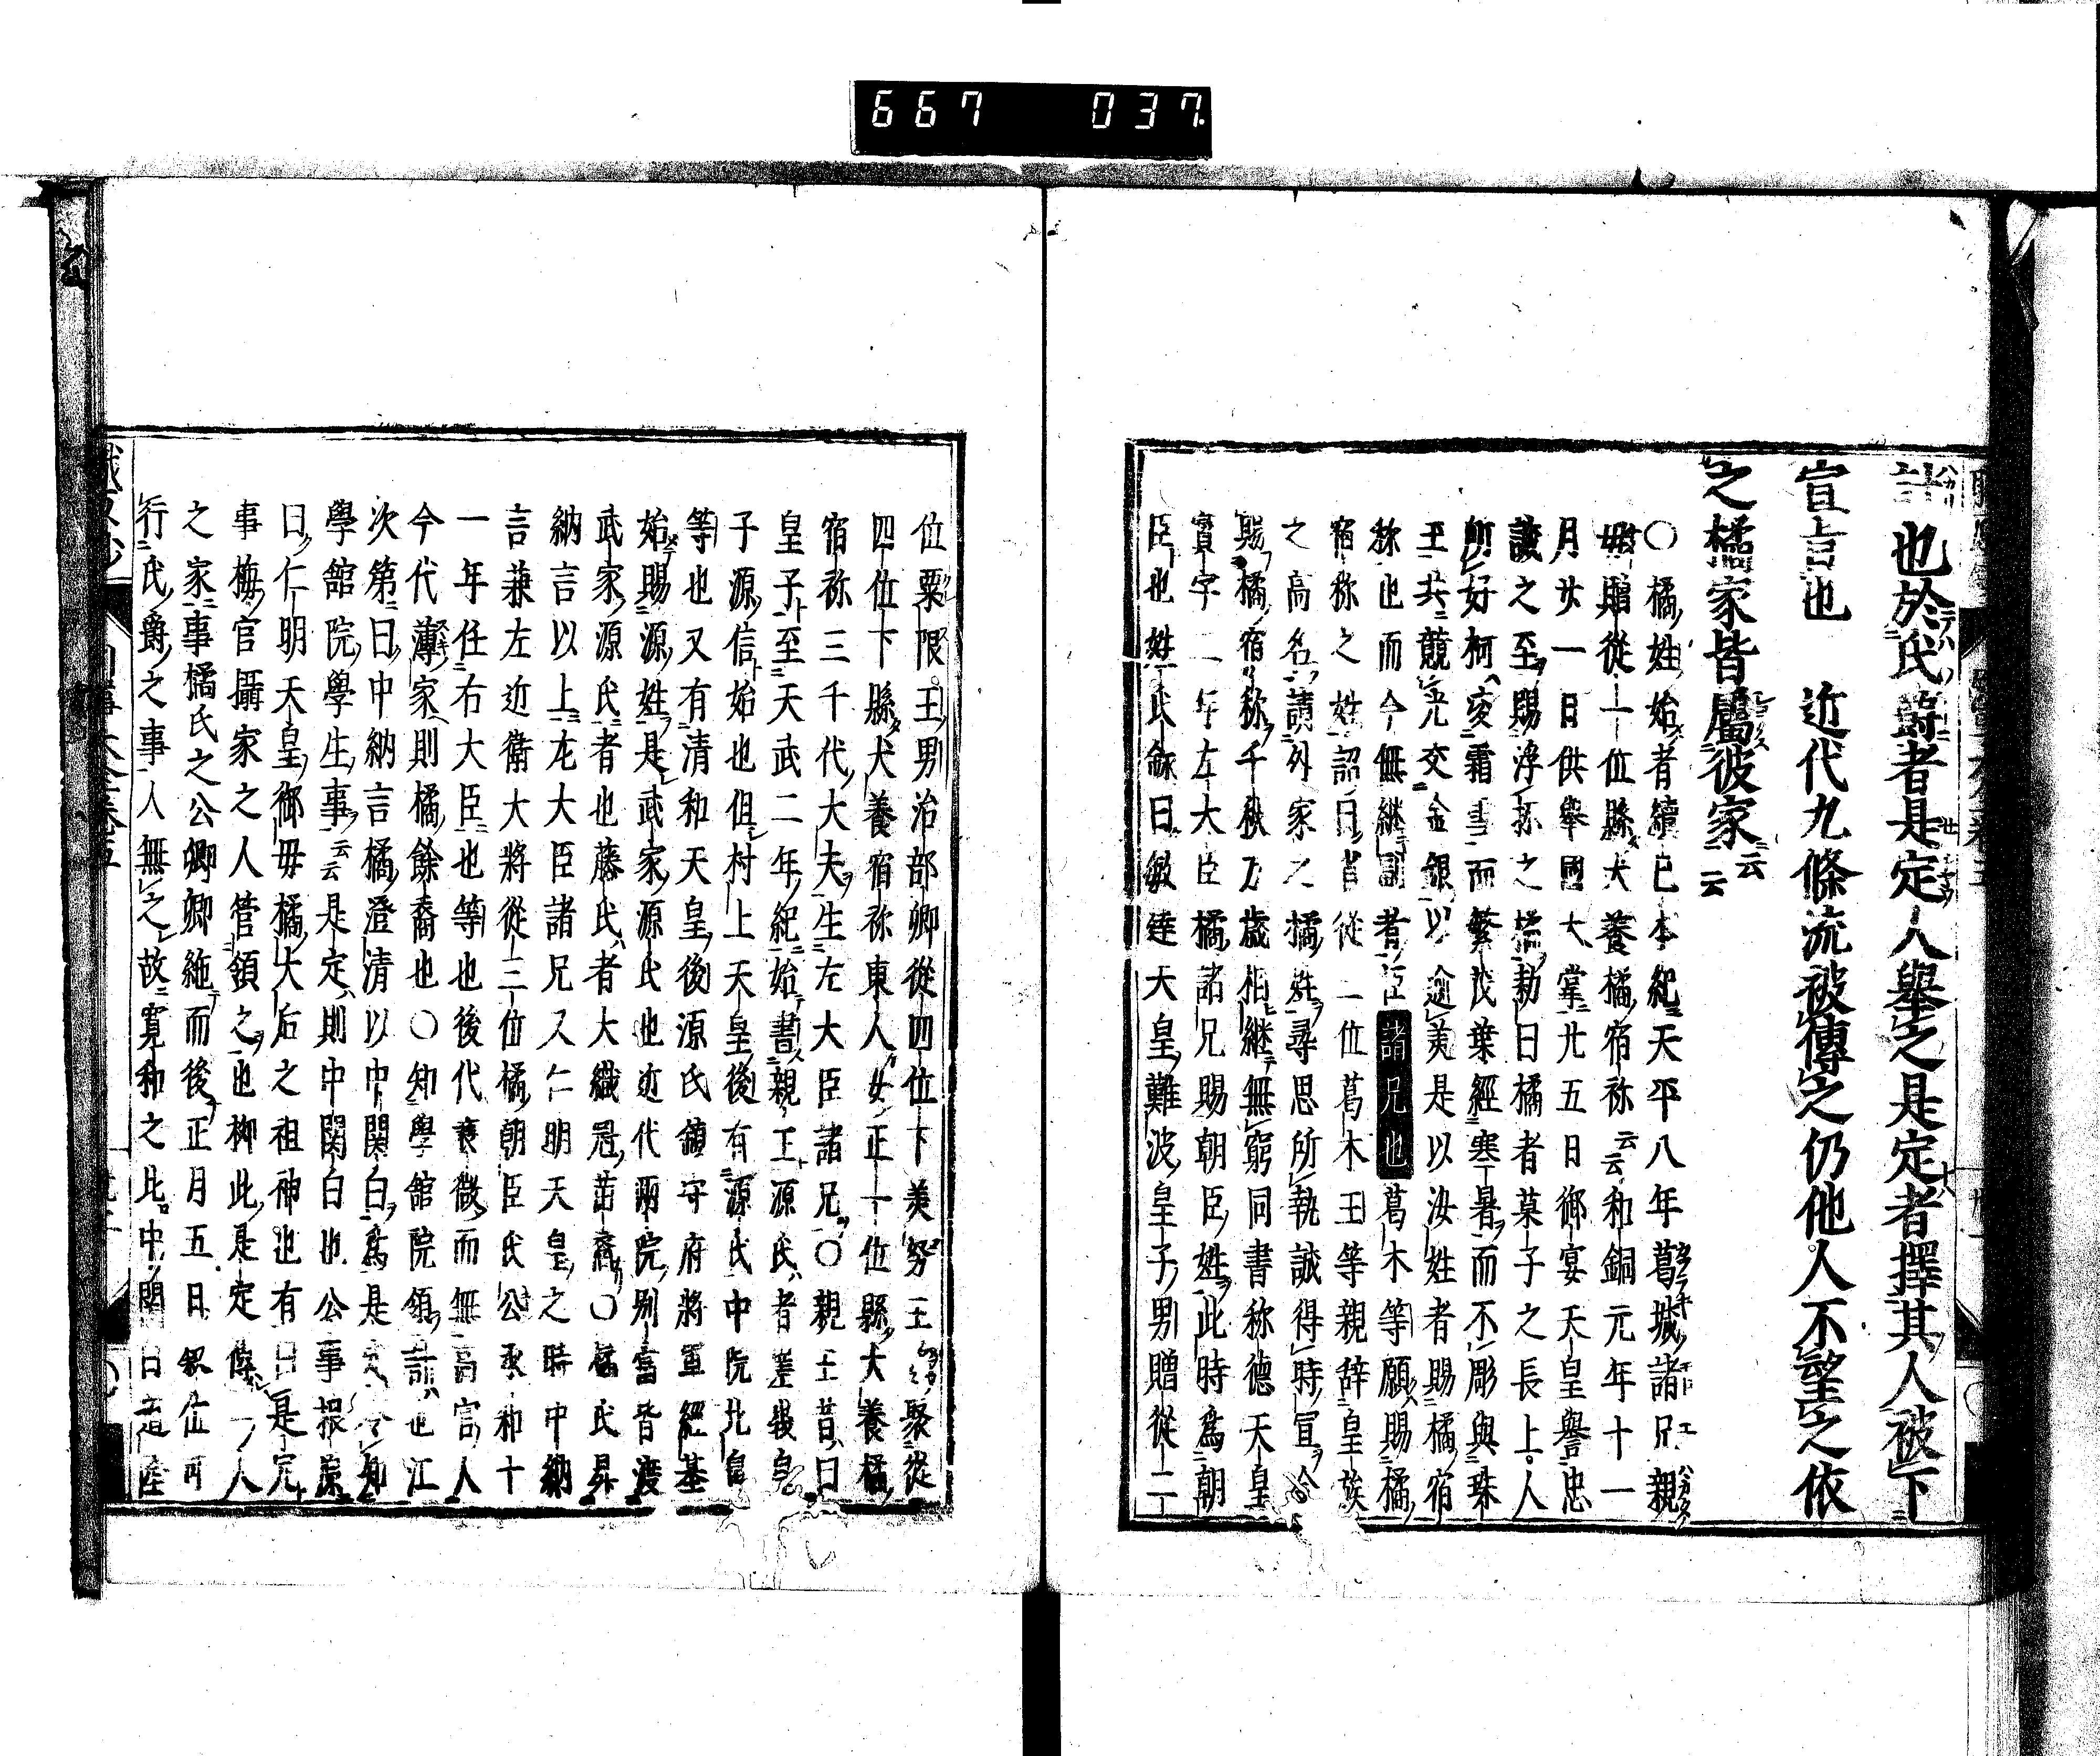 667 037
計也於氏爵者是定人擧之是定者擇其人被下
宣旨也 近代九條流被傳之仍他人不望之依
之橘家皆屬彼家云云
○橘姓始者續日本紀天平八年葛城諸兄親
母贈從一位縣犬養橘宿祢云云和銅元年十一
月廿一日供擧國大掌廿五日御宴天皇譽忠
誠之至賜浮坏之橘勅曰橘者菓子之長上人
所好柯凌霜雪而繁茂葉經寒暑而不彫與珠
玉共競光交金銀以逾美是以汝姓者賜橘宿
祢也而今無継嗣者臣諸兄也葛木等願賜橘
宿祢之姓詔曰省從二位葛木王等親辞皇族
之高名請外家之橘姓尋思所執誠得時宜今
賜橘宿祢千秋万歳相継無窮同書称德天皇
寳字二年左大臣橘諸兄賜朝臣姓此時為朝
臣也姓氏録曰敏達天皇難波皇子男贈從二
位粟隈王男治部卿從四位下美努王聚從
四位下縣犬養宿祢東人女正一位縣犬養橘
宿祢三千代大夫生左大臣諸兄○親王昔曰
皇子至天武二年紀始書親王源氏者嵯峨皇
子源信始也但村上天皇後有源氏中院北畠
等也又有清和天皇後源氏鎮守府將軍經基
始賜源姓是武家源氏也近代兩院別當皆渡
武家源氏者也藤氏者大織冠苗裔○橘氏昇
納言以上左大臣諸兄又仁明天皇之時中納
言兼左近衛大將從三位橘朝臣氏公承和十
一年任右大臣也等也後代衰微而無高官人
今代薄家則橘餘裔也○知學舘院領訓也江
次第曰中納言橘澄清以中関白為是定令知
學舘院學生事云云是定則中関白也公事根源
曰仁明天皇御母橘大后之祖神也有日是定
事梅官攝家之人管領之也柳此是定條一人
之家事橘氏之公卿卿絁而後正月五日叙位可
行氏爵之事人無之故寛和之比中関白道隆